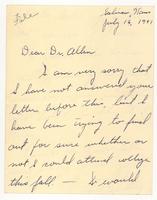 File
Salina, Kans
July 16, 1941
Dear Dr. Allen
I am very sorry that
I have not answered your
letter before this, but I
have been trying to find
out for sure whether or
not I could attend college
this fall. — I would